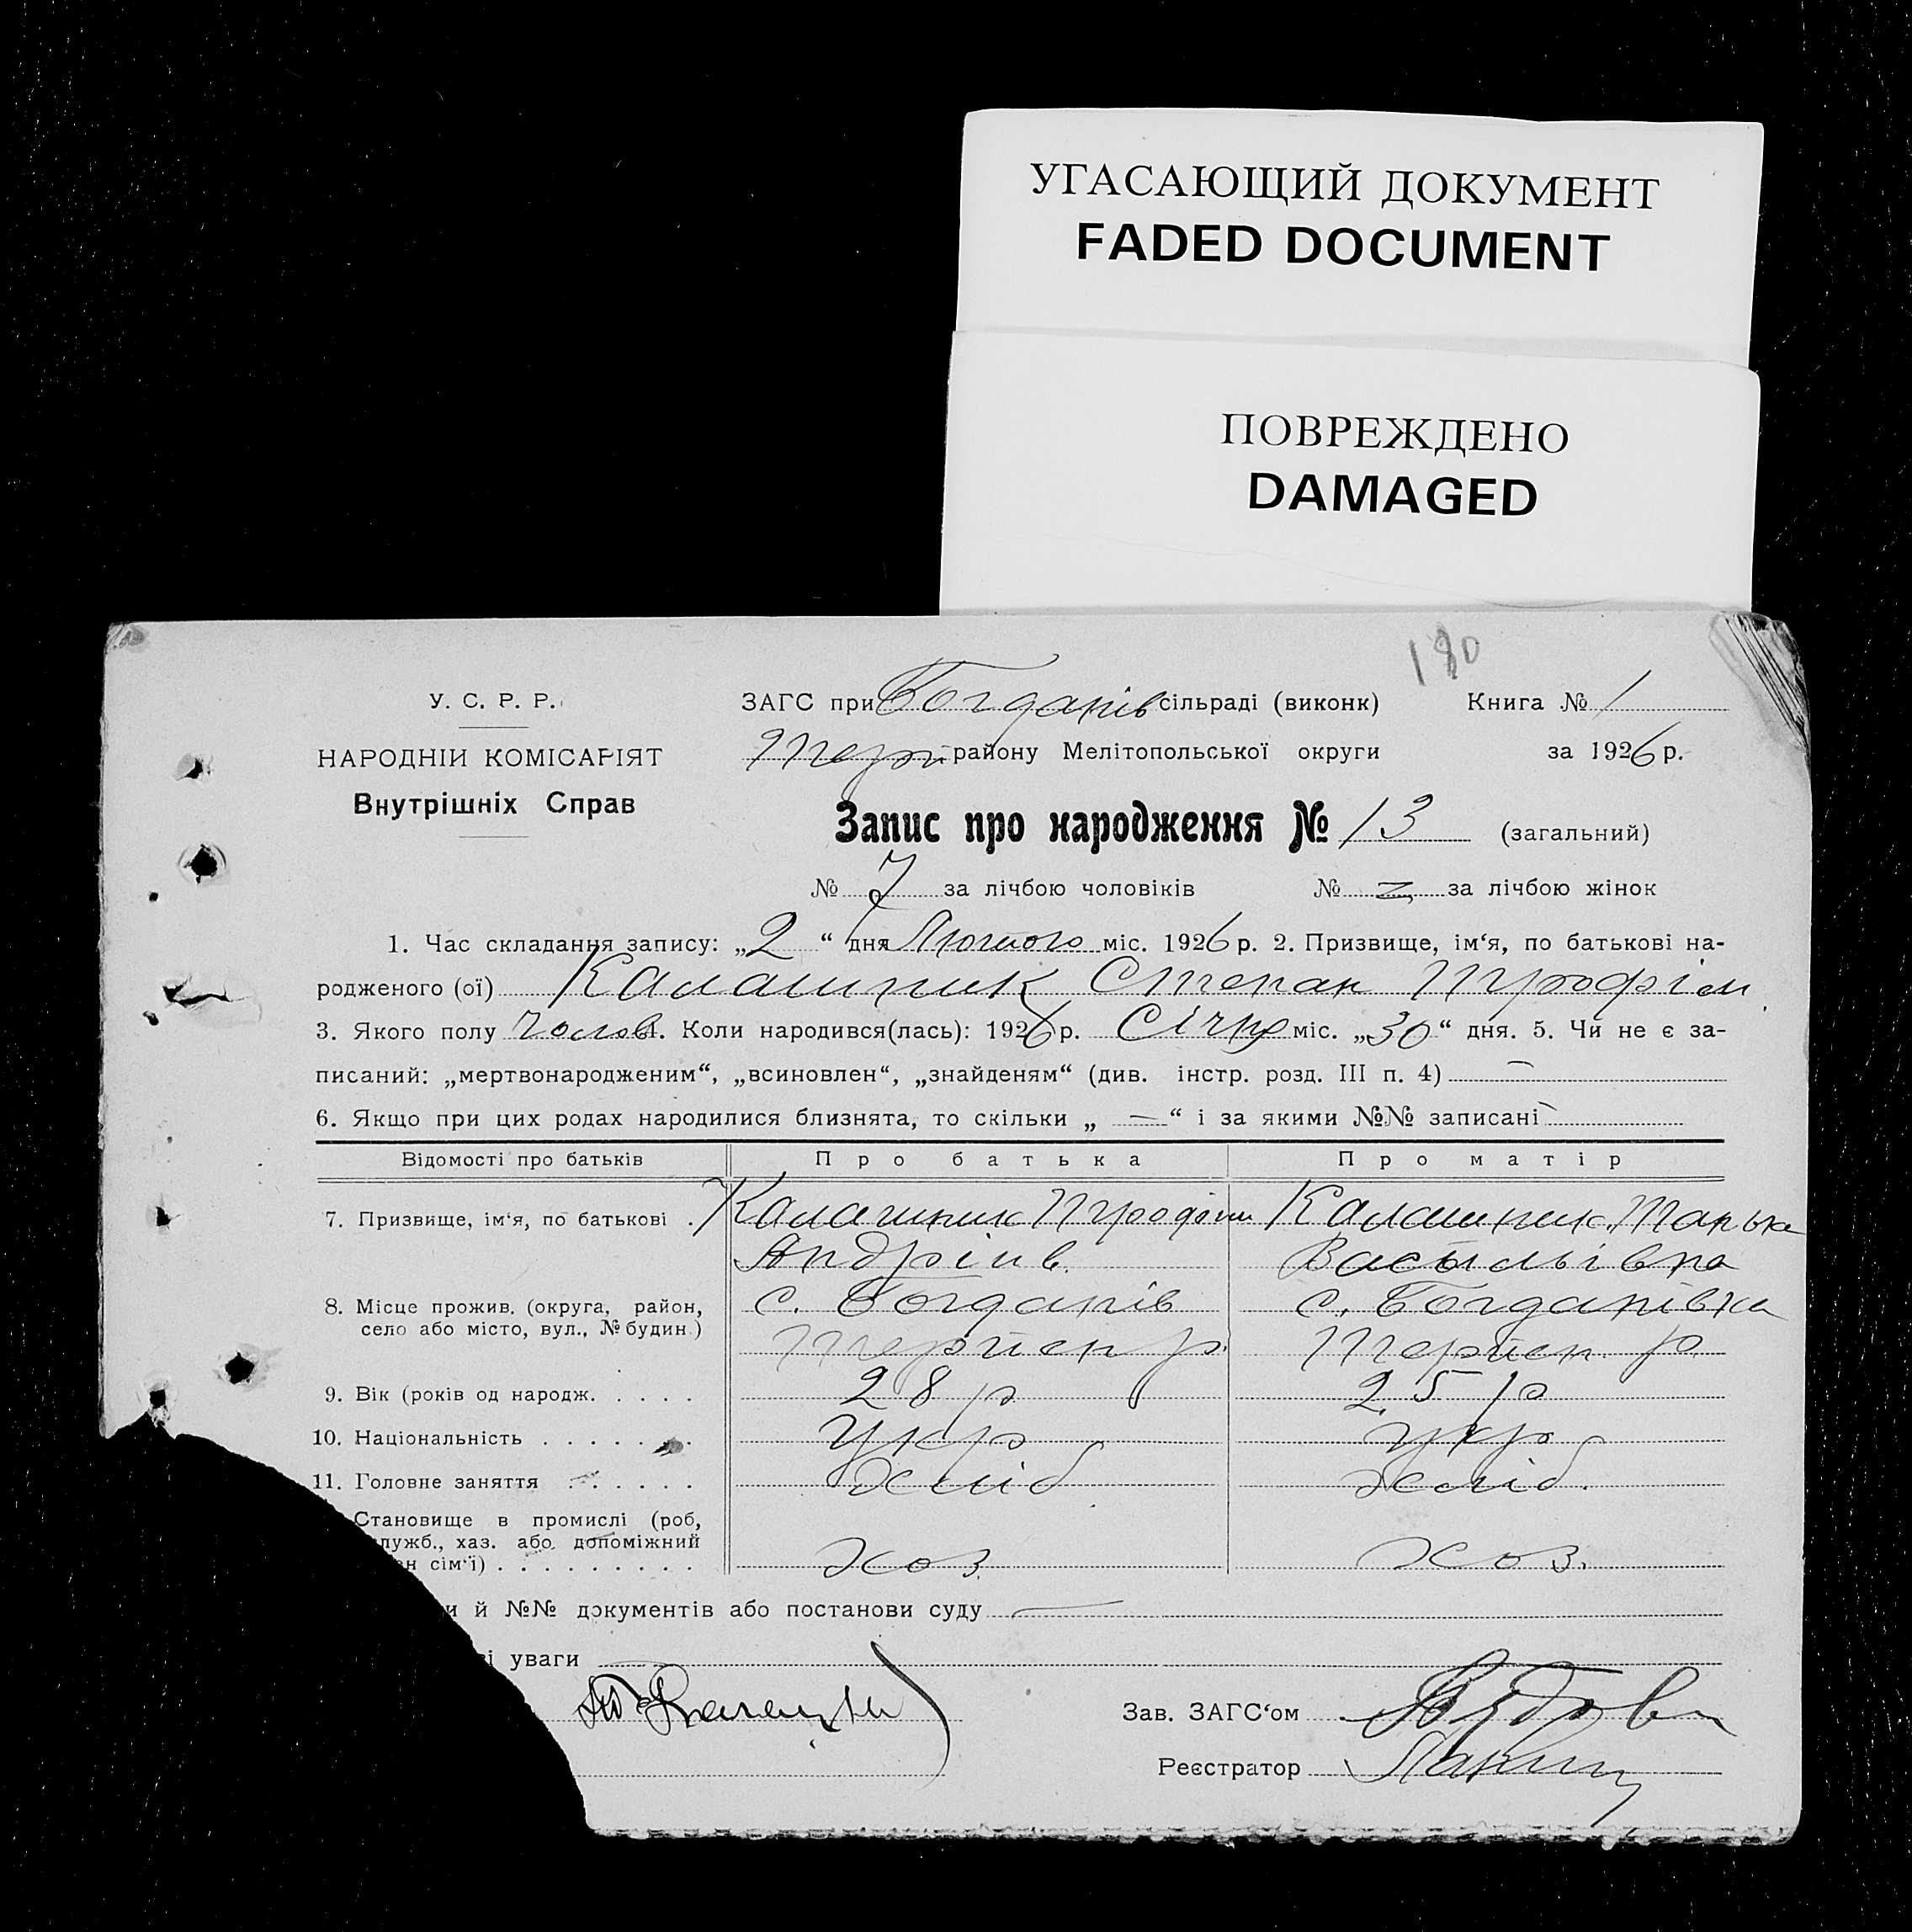 УГАСАЮЩИЙ ДОКУМЕНТ
FADED DOCUMENT
ПОВРЕЖДЕНО
DAMAGED
180
У. С. Р. Р.
НАРОДНІЙ КОМІСАРІЯТ
Внутрішніх Справ
ЗАГС при Богданів сільраді (виконк) Книга № 1
Терп району Мелітопольської округи за 1926 р.
Запис про народження № 13 (загальний)
№ 7 за лічбою чоловіків № за лічбою жінок
1. Час складання запису: „2“ дня Лютого міс. 1926 р. 2. Призвище, ім‘я, по батькові на-
родженого (ої) Калашник Степан Трофім
3. Якого полу Чолов 4. Коли народився(лась): 1926 р. Січня міс. „30“ дня. 5. Чи не є за-
писаний: „мертвонародженим“, „всиновлен“, „знайденям“ (див. інстр. розд. III п. 4) —
6. Якщо при цих родах народилися близнята, то скільки „ — “ і за якими №№ записані —
Відомості про батьків Про батька Про матір
7. Призвище, ім‘я, по батькові . Калашник Трофім Калашник Танька
Андріив Васильівна
8. Місце прожив. (округа, район, с. Богданів с. Богданівка
село або місто, вул., № будин.) Терпен р. Терпен р.
9. Вік (років од народж. . . . . 28 р 25 р
10. Національність . . . . . . . Укр укр
11. Головне заняття . . . . . . хліб хліб.
Становище в промислі (роб,
служб., хаз. або допоміжний
н сім‘ї) . . . . . . . . . хоз. хоз.
и й №№ документів або постанови суду —
ві уваги
Зав. ЗАГС‘ом
Реєстратор